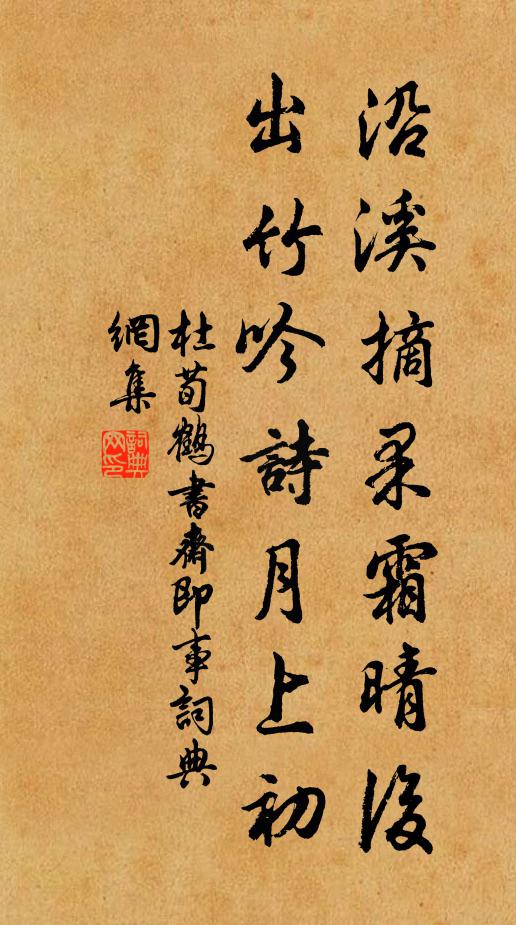 沿溪摘果霜晴後
出竹吟詩月上初
杜荀鶴書齋即事詞典
網集
詞典
网印